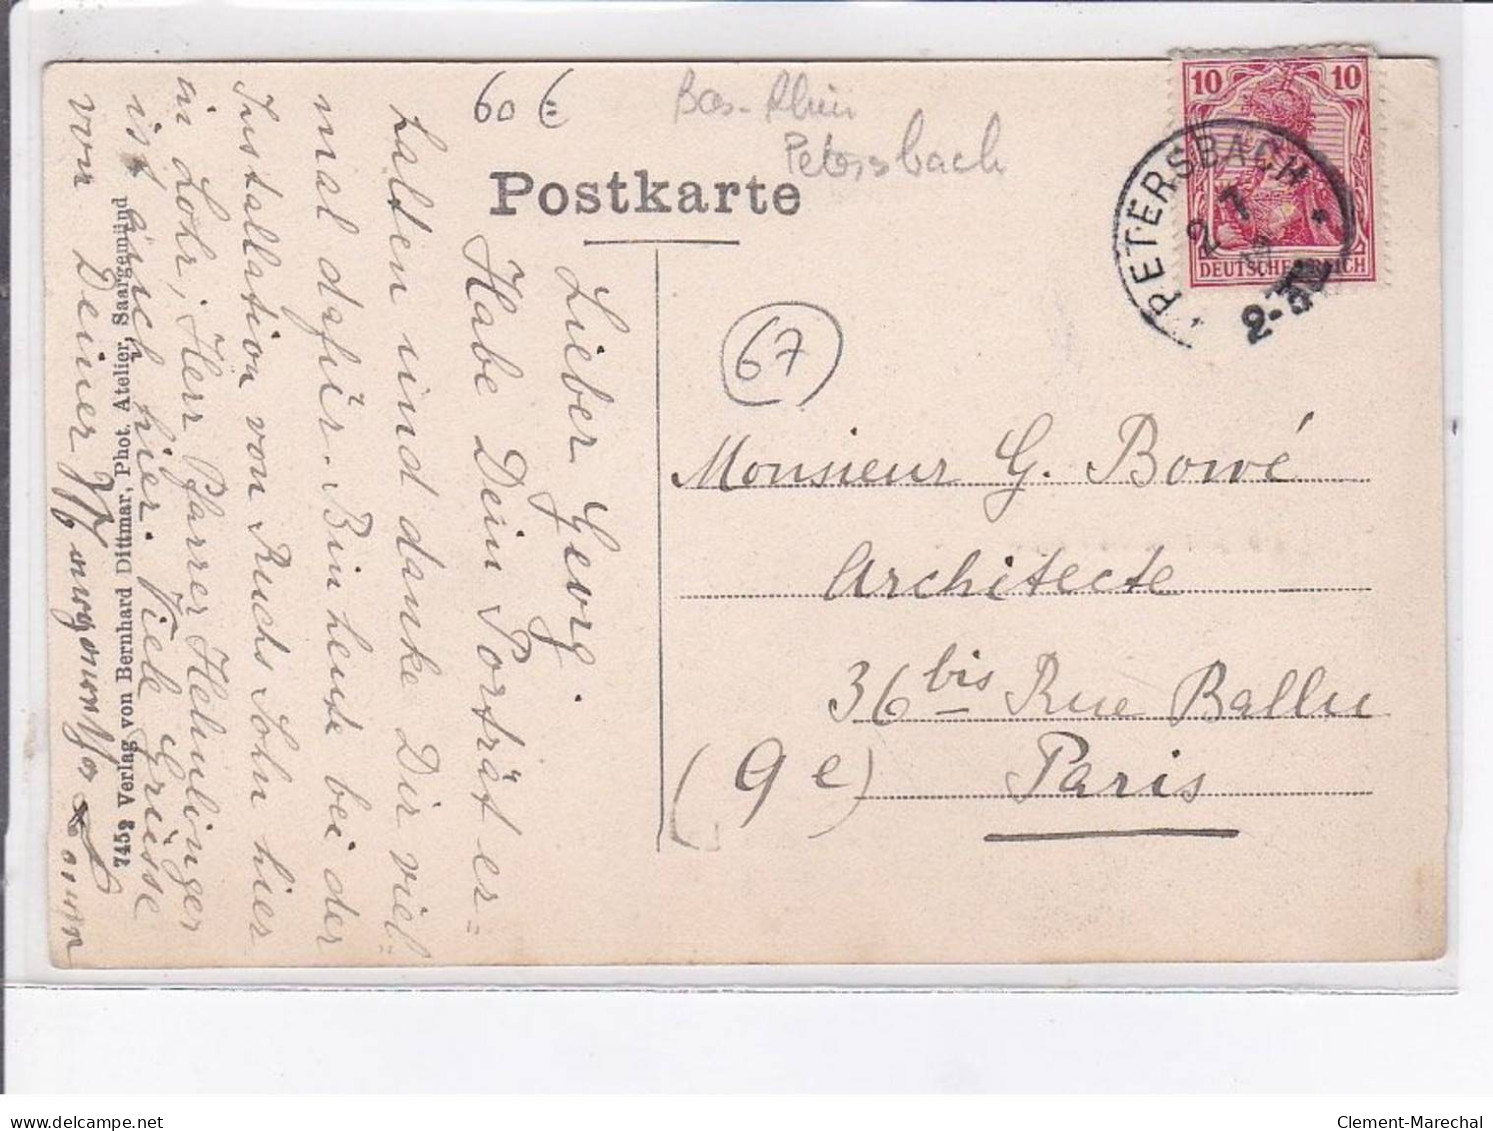 60 €
Bas-Rhin
Petersbach
Postkarte
10 10
DEUTSCHES REICH
PETERSBACH
2 7
67
Monsieur G. Bowé
Architecte
36 bis Rue Ballu
(9e) Paris
Lieber Georg.
Habe Dein Porträt er=
halten und danke Dir viel=
mal dafür. Bin heute bei der
Installation von Ruchs Sohn hier
in Lohr; Herr Pfarrer Hehnlinger
ist auch hier. Viele Grüsse
von Deiner
7452 Verlag von Bernhard Dittmar, Phot. Atelier, Saargemünd
delcampe.net
Clement-Marechal